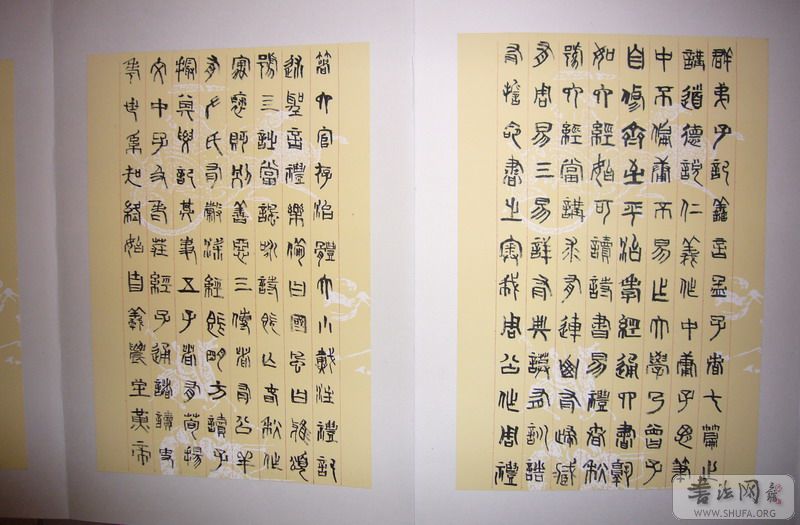 群弟子記善言孟子者七篇止
講道德說仁義作中庸子思筆
中不偏庸不易作大學乃曾子
自修齊至平治孝經通四書熟
如六經始可讀詩書易禮春秋
號六經當講求有連山有歸藏
有周易三易詳有典謨有訓誥
有誓命書之奧我周公作周禮
著六官存治體大小戴注禮記
述聖言禮樂備曰國風曰雅頌
號三詩當諷詠詩既亡春秋作
寓褒貶別善惡三傳者有公羊
有左氏有穀梁經既明方讀子
撮其要記其事五子者有荀揚
文中子及老莊經子通諸讀史
考世系知終始自羲農至黃帝
书法网
WWW.SHUFA.ORG